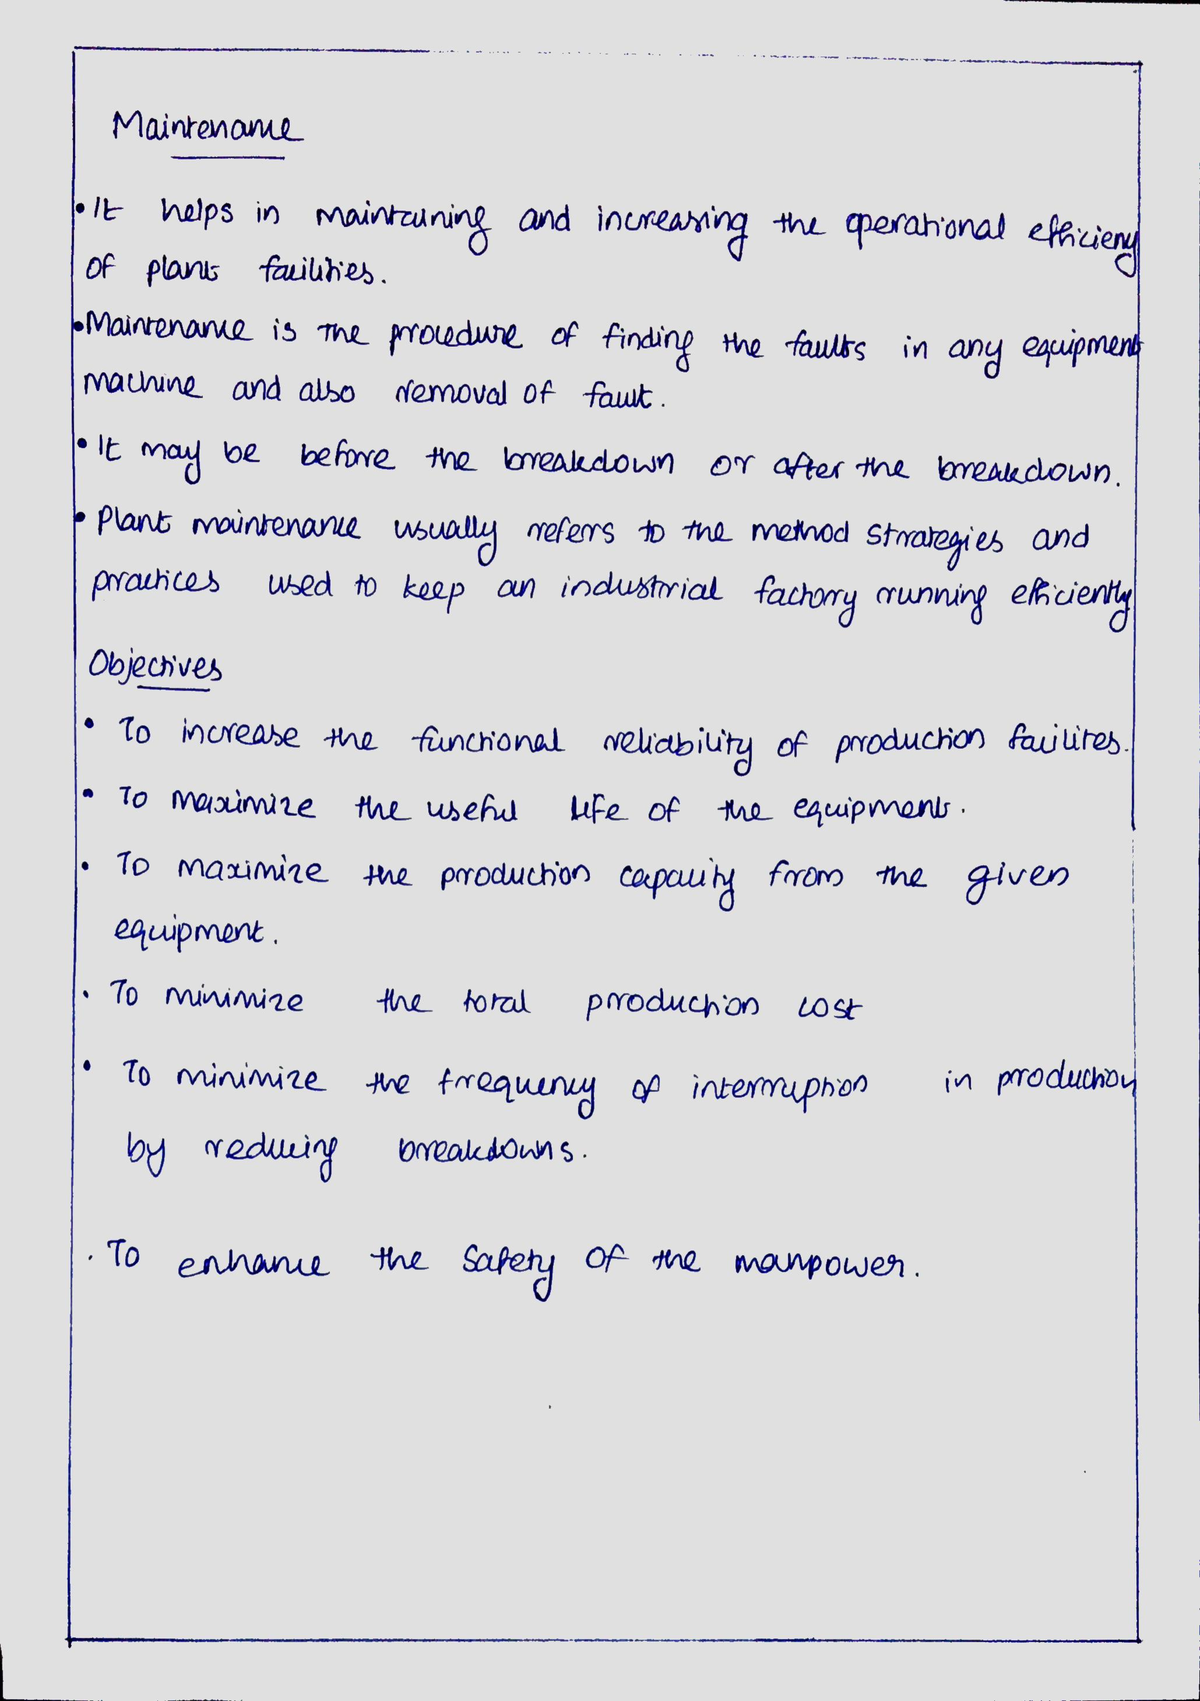 Maintenance
• It helps in maintaining and increasing the operational efficiency
of plant facilities.
• Maintenance is the procedure of finding the faults in any equipment
machine and also removal of fault.
• It may be before the breakdown or after the breakdown.
• Plant maintenance usually refers to the method strategies and
practices used to keep an industrial factory running efficiently
Objectives
• To increase the functional reliability of production facilites.
• To maximize the useful life of the equipment.
• To maximize the production capacity from the given
equipment.
• To minimize the total production cost
• To minimize the frequency of interruption in production
by reducing breakdowns.
. To enhance the safety of the manpower.